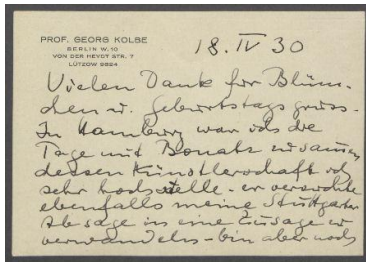 PROF. GEORG KOLBE
BERLIN W. 10
VON DER HEYDT STR. 7
LÜTZOW 9824
18. IV 30
Vielen Dank für Blüm-
chen u. Geburtstagsgruss.
In Hamburg war ich die
Tage mit Bonatz zusammen,
dessen Künstlerschaft ich
sehr hoch stelle - er versuchte
ebenfalls meine Stuttgarter
Absage in eine Zusage zu
verwandeln - bin aber noch